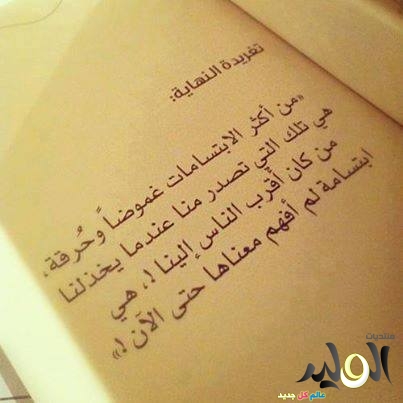 تغريدة النهاية:
«من أكثر الابتسامات غموضاً وحُرقة،
هي تلك التي تصدر منا عندما يخذلنا
من كان أقرب الناس إلينا !، هي
ابتسامة لم أفهم معناها حتى الآن !»
منتديات
الوليد
عالم كل جديد